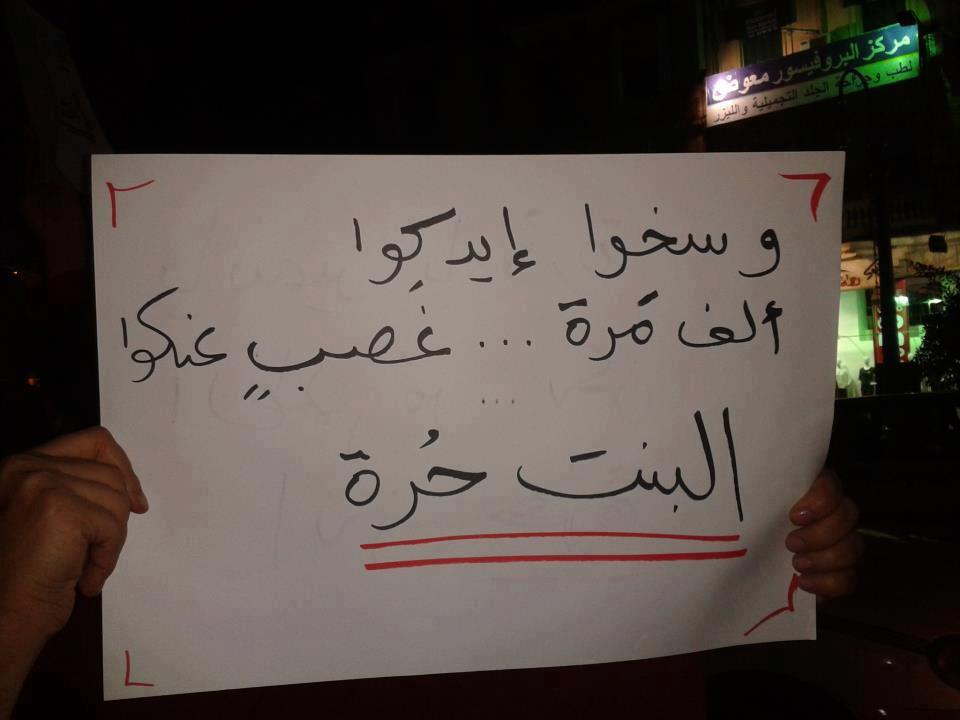 مركز البروفيسور معوض
لطب وجراحة الجلد التجميلية والليزر
وسخوا إيدكوا
ألف مَرة ... غَصبٍ عنكوا
...
البنت حُرة